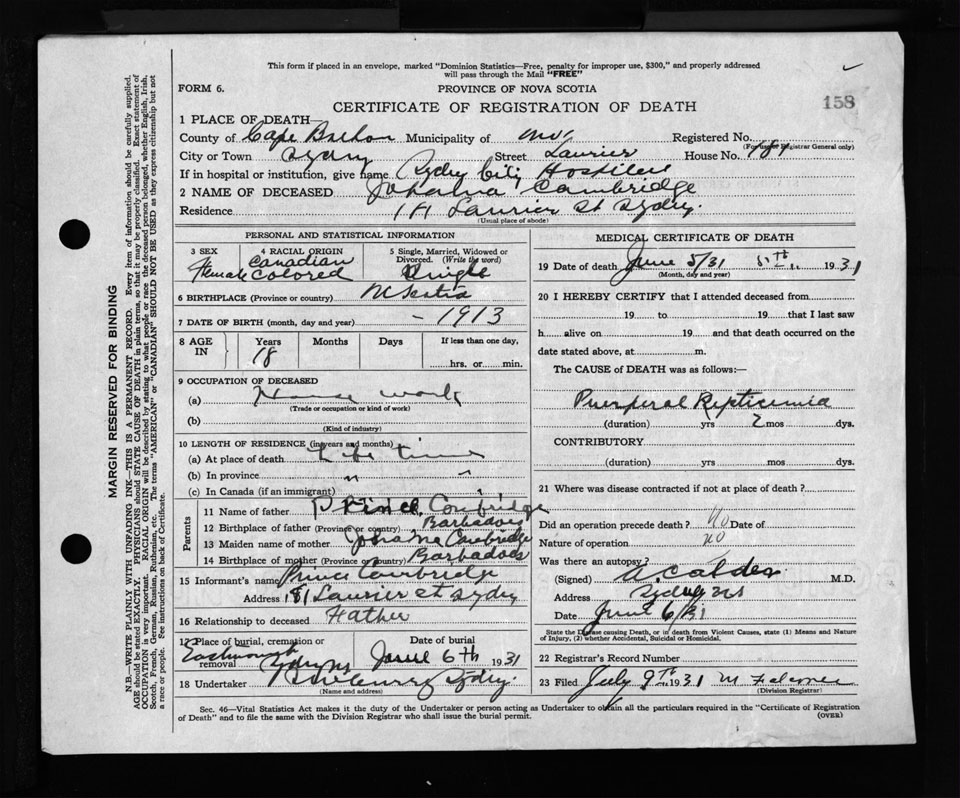 This form if placed in an envelope, marked "Dominion Statistics—Free, penalty for improper use, $300," and properly addressed
will pass through the Mail "FREE"
FORM 6.
PROVINCE OF NOVA SCOTIA
158
CERTIFICATE OF REGISTRATION OF DEATH
1 PLACE OF DEATH—
County of Cape Breton Municipality of Registered No.
(For use of Registrar General only)
City or Town Sydney Street Laurier House No. 181
If in hospital or institution, give name Sydney City Hospital
2 NAME OF DECEASED Johanna Cambridge
Residence 181 Laurier St Sydney.
(Usual place of abode)
PERSONAL AND STATISTICAL INFORMATION
3 SEX Female
4 RACIAL ORIGIN Canadian Colored
5 Single, Married, Widowed or Divorced. (Write the word) Single
6 BIRTHPLACE (Province or country) N Scotia
7 DATE OF BIRTH (month, day and year) - 1913
8 AGE IN Years 18 Months Days If less than one day, hrs. or min.
9 OCCUPATION OF DECEASED
(a) House work
(Trade or occupation or kind of work)
(b)
(Kind of industry)
10 LENGTH OF RESIDENCE (in years and months)
(a) At place of death Life time
(b) In province " "
(c) In Canada (if an immigrant)
Parents
11 Name of father Prince Cambridge
12 Birthplace of father (Province or country) Barbadoes
13 Maiden name of mother Johanna Cambridge
14 Birthplace of mother (Province or country) Barbadoes
15 Informant's name Prince Cambridge
Address 181 Laurier St Sydney
16 Relationship to deceased Father
17 Place of burial, cremation or removal Sydney NS
Date of burial June 6th 1931
18 Undertaker Sydney.
(Name and address)
MEDICAL CERTIFICATE OF DEATH
19 Date of death June 5/31 5th 1931
(Month, day and year)
20 I HEREBY CERTIFY that I attended deceased from
19 to 19 that I last saw
h alive on 19 and that death occurred on the
date stated above, at m.
The CAUSE of DEATH was as follows:—
Puerperal Septicemia
(duration) yrs 2 mos dys.
CONTRIBUTORY
(duration) yrs mos dys.
21 Where was disease contracted if not at place of death?
Did an operation precede death? No Date of
Nature of operation no
Was there an autopsy?
(Signed) A. Calder M.D.
Address Sydney NS
Date June 6/31
State the Disease causing Death, or in death from Violent Causes, state (1) Means and Nature
of Injury, (2) whether Accidental, Suicidal or Homicidal.
22 Registrar's Record Number
23 Filed July 9th 1931 M Falconer
(Division Registrar)
Sec. 46—Vital Statistics Act makes it the duty of the Undertaker or person acting as Undertaker to obtain all the particulars required in the "Certificate of Registration
of Death" and to file the same with the Division Registrar who shall issue the burial permit.
(OVER)
MARGIN RESERVED FOR BINDING
N.B.—WRITE PLAINLY WITH UNFADING INK—THIS IS A PERMANENT RECORD. Every item of information should be carefully supplied.
AGE should be stated EXACTLY. PHYSICIANS should STATE CAUSE OF DEATH in plain terms, so that it may be properly classified. Exact statement of
OCCUPATION is very important. RACIAL ORIGIN will be described by stating to what people or race the deceased person belonged, whether English, Irish,
Scotch, French, German, Russian, Ruthenian, etc. The terms "AMERICAN" or "CANADIAN" SHOULD NOT BE USED as they express citizenship but not
a race or people. See instructions on back of Certificate.